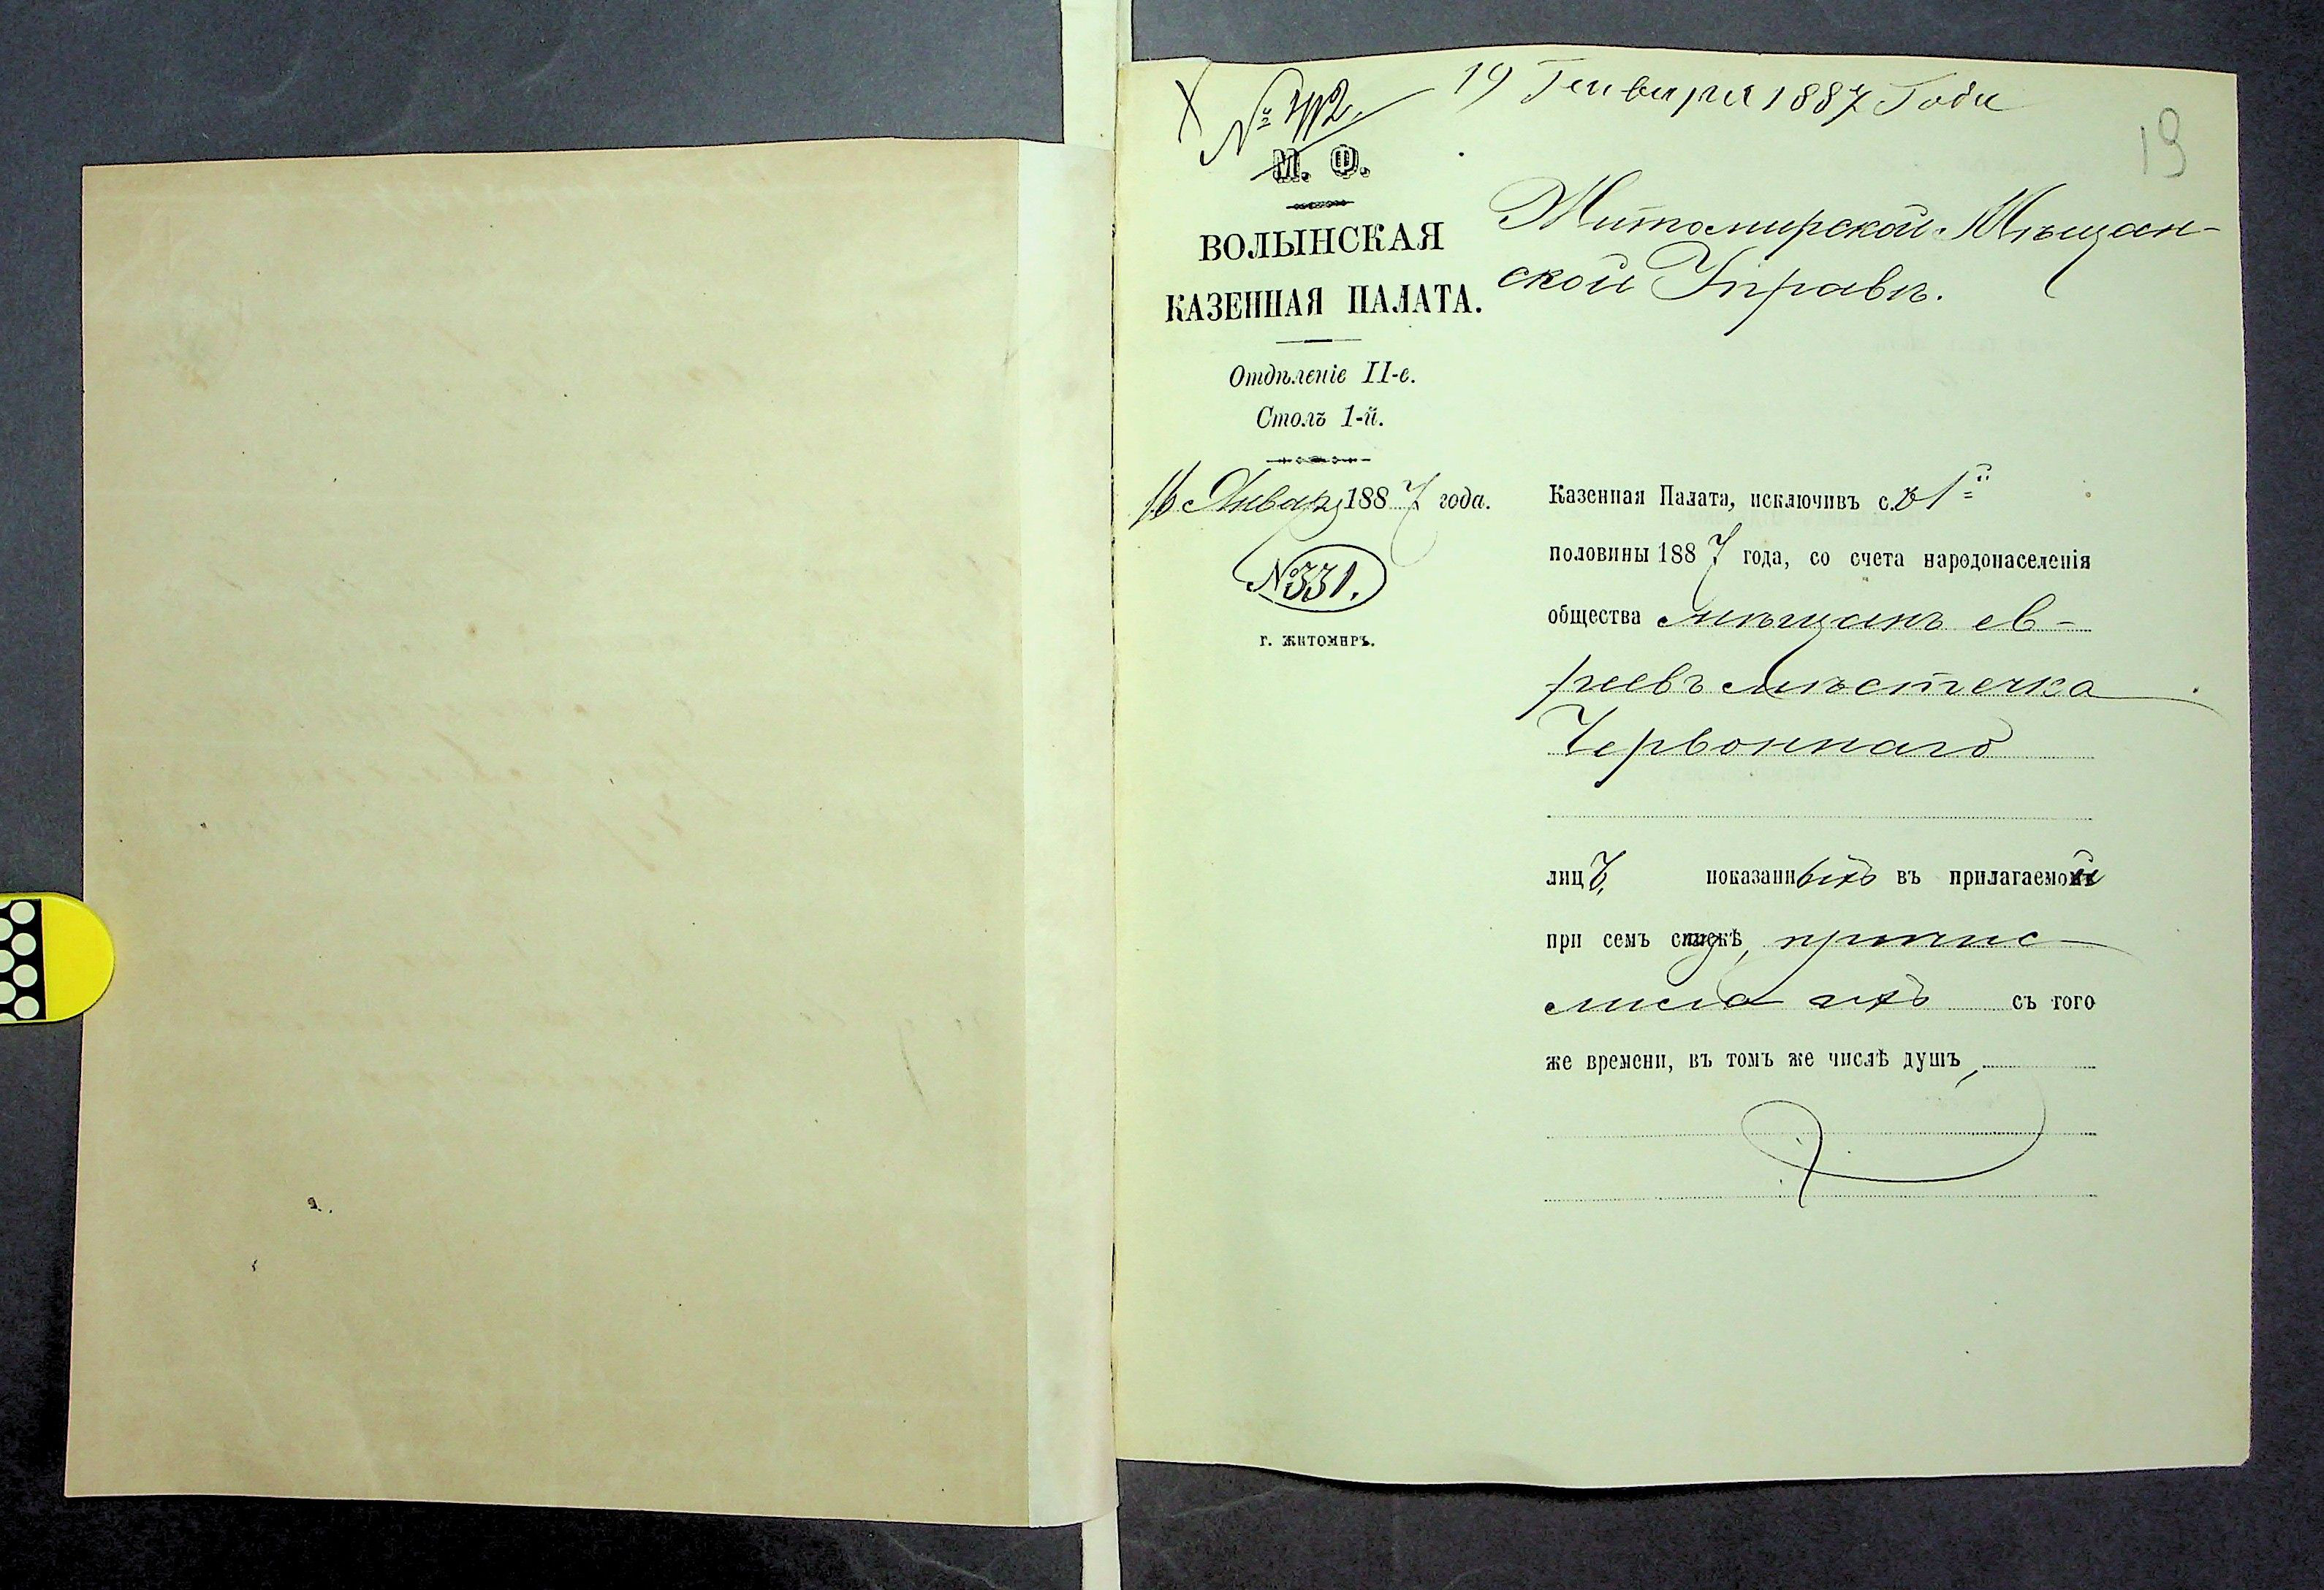 19 Генваря 1887 Года
19
М. Ф.
ВОЛЫНСКАЯ
КАЗЕННАЯ ПАЛАТА.
Отдѣленіе II-е.
Столъ 1-й.
16 Января 1887 года.
№ 331.
г. житомиръ.
Житомирской Мѣщан-
ской Управѣ.
Казенная Палата, исключивъ съ 1й
половины 1887 года, со счета народонаселенія
общества мѣщанъ ев-
реевъ мѣстечка
Червоннаго
лицъ, показанныхъ въ прилагаемой
при семъ причис
лила ихъ съ того
же времени, въ томъ же числѣ душъ,